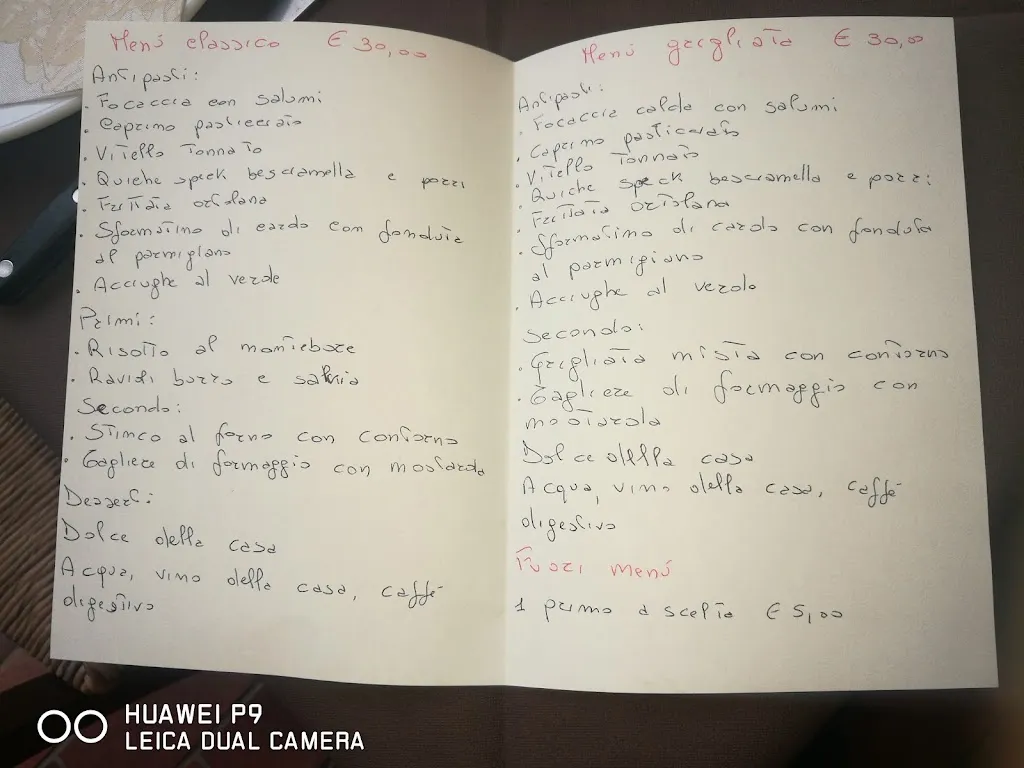 Menú classico € 30,00
Antipasti:
• Focaccia con salumi
• Caprino pasticciato
• Vitello Tonnato
• Quiche speck besciamella e porri
• Frittata ortolana
• Sformatino di cardo con fonduta
al parmigiano
• Acciughe al verde
Primi:
• Risotto al montebore
• Ravioli burro e salvia
Secondo:
• Stinco al forno con contorno
• Tagliere di formaggio con mostarda
Dessert:
Dolce della casa
Acqua, vino della casa, caffé
digestivo
Menú grigliata € 30,00
Antipasti:
• Focaccia calda con salumi
• Caprino pasticciato
• Vitello Tonnato
• Quiche speck besciamella e porri
• Frittata ortolana
• Sformatino di cardo con fonduta
al parmigiano
• Acciughe al verde
Secondo:
• Grigliata mista con contorno
• Tagliere di formaggio con
mostarda
Dolce della casa
Acqua, vino della casa, caffé
digestivo
Fuori menú
1 primo a scelta € 5,00
HUAWEI P9
LEICA DUAL CAMERA